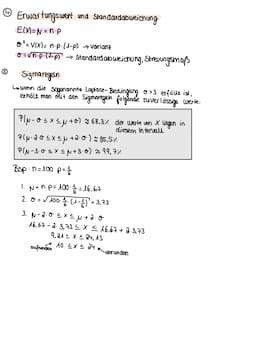 ④ Erwartungswert und Standardabweichung
E(X)=μ= n·p
σ²= V(X)= n·p·(1-p) → Varianz
σ=√n·p·(1-p) → Standardabweichung, Streuungsmaß
⑤ Sigmaregeln
↳ Wenn die sogenannte Laplace-Bedingung σ>3 erfüllt ist,
erhält man mit den Sigmaregeln folgende zuverlässige Werte:
P(μ-σ ≤ X ≤ μ+σ) ≈ 68,3% der Werte von X liegen in
diesem Intervall
P(μ-2·σ ≤ X ≤ μ+2·σ) ≈ 95,5%
P(μ-3·σ ≤ X ≤ μ+3·σ) ≈ 99,7%
Bsp: n=100 p=1/6
1. μ=n·p=100·1/6=16,67
2. σ=√100·1/6·(1-1/6)=3,73
3. μ-2·σ ≤ X ≤ μ+2·σ
16,67-2·3,73 ≤ X ≤ 16,67+2·3,73
9,21 ≤ X ≤ 24,13
aufrunden 10 ≤ X ≤ 24 abrunden